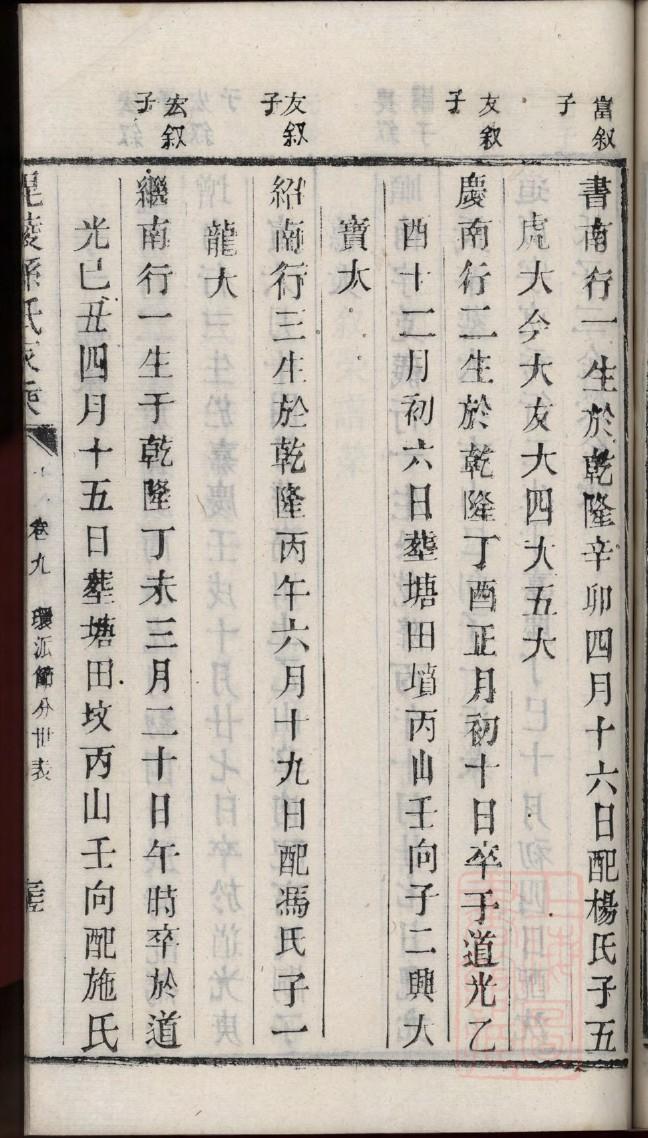 富叙子
書南行一生於乾隆辛卯四月十六日配楊氏子五
虎大今大友大四大五大
友叙子
慶南行二生於乾隆丁酉正月初十日卒于道光乙
酉十二月初六日塟塘田墳丙山壬向子二興大
寶大
友叙子
紹南行三生於乾隆丙午六月十九日配馮氏子一
龍大
宏叙子
繼南行一生于乾隆丁未三月二十日午時卒於道
光巳丑四月十五日塟塘田坟丙山壬向配施氏
毘陵孫氏家乘
卷九
環派節分世表